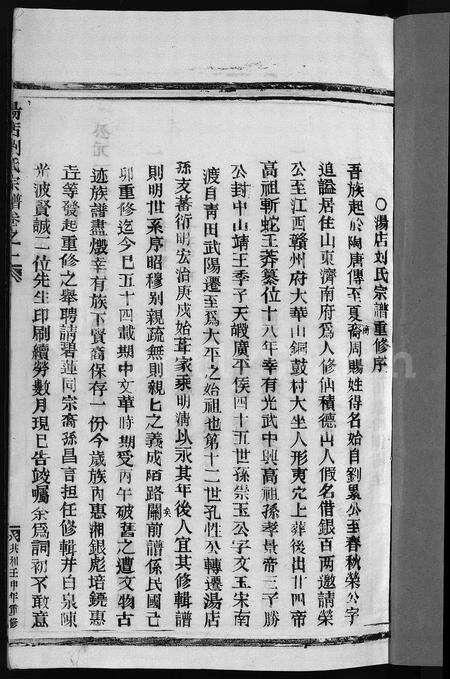 ○湯店刘氏宗譜重修序
吾族起於陶唐傳至夏裔周賜姓得名始自劉累公至春秋榮公字
追謚居住山東濟南府為人修仙積德山人假名借銀百兩邀請榮
公至江西贛州府大華山銅鼓村大坐人形夷穴上葬後出廿四帝
高祖斬蛇王莽篡位十八年幸有光武中興高祖孫孝景帝三子勝
公封中山靖王季子天嘏廣平侯四十五世孫崇玉公字文玉宋南
渡自青田武陽遷至為大平之始祖也第十二世孔性公轉遷湯店
孫支蕃衍明宏治庚戌始葺家乘明淸以永其年後人宜其修輯譜
則明世系序昭穆别親疏無則親匕之義成陌路關前譜係民國己
卯重修迄今已五十四載期中文華時期受丙午破舊之遭文物古
迹族譜盡燬幸有族下賢裔保存一份今歲族內惠湘銀彪培鐃惠
壵等發起重修之舉聘請碧蓮同宗喬孫昌言担任修輯并白泉陳
光波賢誠二位先生印刷續勞數月現已告竣囑余為詞初不敢意
湯店刘氏宗譜卷之一
共和壬申年重修